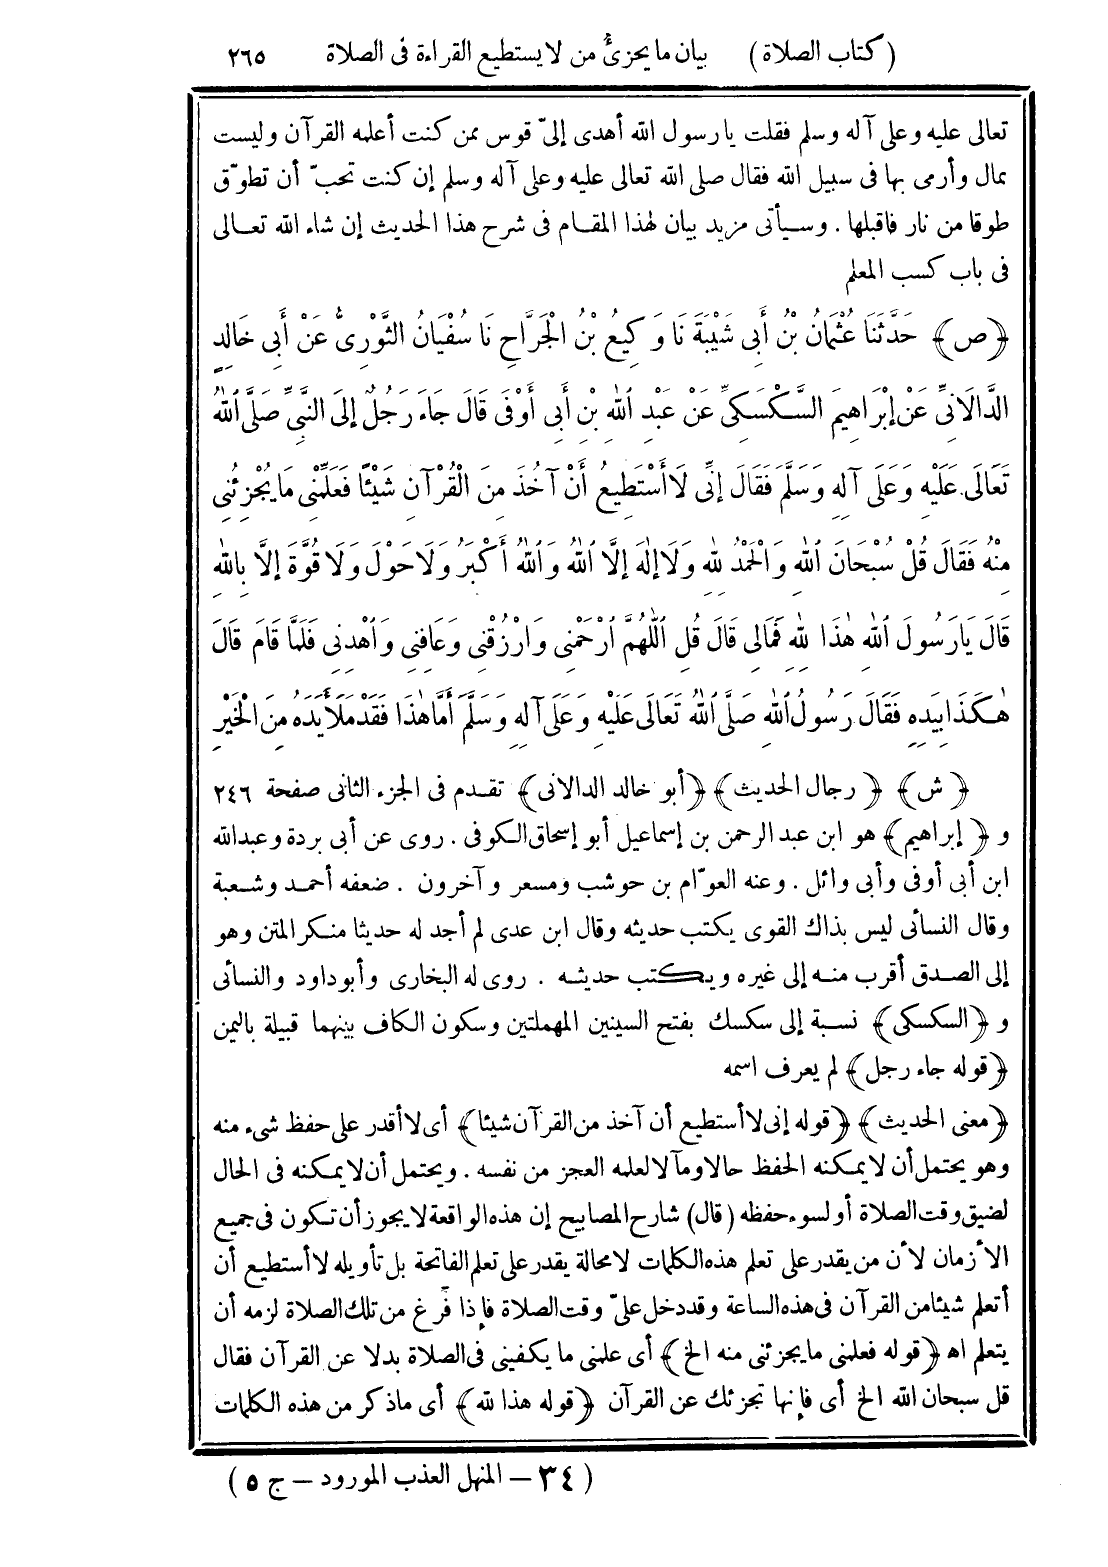 (كتاب الصلاة) بيان ما يجزئ من لا يستطيع القراءة فى الصلاة ٢٦٥
تعالى عليه وعلى آله وسلم فقلت يا رسول الله أهدى إلىّ قوس ممن كنت أعلمه القرآن وليست
بمال وأرمى بها فى سبيل الله فقال صلى الله تعالى عليه وعلى آله وسلم إن كنت تحبّ أن تطوّق
طوقا من نار فاقبلها . وسيأتى مزيد بيان لهذا المقام فى شرح هذا الحديث إن شاء الله تعالى
فى باب كسب المعلم
﴿ص﴾ حَدَّثَنَا عُثْمَانُ بْنُ أَبِى شَيْبَةَ نَا وَكِيعُ بْنُ الْجَرَّاحِ نَا سُفْيَانُ الثَّوْرِىُّ عَنْ أَبِى خَالِدٍ
الدَّالَانِىِّ عَنْ إِبْرَاهِيمَ السَّكْسَكِىِّ عَنْ عَبْدِ اللهِ بْنِ أَبِى أَوْفَى قَالَ جَاءَ رَجُلٌ إِلَى النَّبِىِّ صَلَّى اللهُ
تَعَالَى عَلَيْهِ وَعَلَى آلِهِ وَسَلَّمَ فَقَالَ إِنِّى لَا أَسْتَطِيعُ أَنْ آخُذَ مِنَ الْقُرْآنِ شَيْئًا فَعَلِّمْنِى مَا يُجْزِئُنِى
مِنْهُ فَقَالَ قُلْ سُبْحَانَ اللهِ وَالْحَمْدُ لِلهِ وَلَا إِلَهَ إِلَّا اللهُ وَاللهُ أَكْبَرُ وَلَا حَوْلَ وَلَا قُوَّةَ إِلَّا بِاللهِ
قَالَ يَا رَسُولَ اللهِ هٰذَا لِلهِ فَمَالِى قَالَ قُلِ اللّٰهُمَّ ارْحَمْنِى وَارْزُقْنِى وَعَافِنِى وَاهْدِنِى فَلَمَّا قَامَ قَالَ
هٰكَذَا بِيَدِهِ فَقَالَ رَسُولُ اللهِ صَلَّى اللهُ تَعَالَى عَلَيْهِ وَعَلَى آلِهِ وَسَلَّمَ أَمَّا هٰذَا فَقَدْ مَلَأَ يَدَهُ مِنَ الْخَيْرِ
﴿ش﴾ ﴿رجال الحديث﴾ ﴿أبو خالد الدالانى﴾ تقدم فى الجزء الثانى صفحة ٢٤٦
و ﴿إبراهيم﴾ هو ابن عبد الرحمن بن إسماعيل أبو إسحاق الكوفى . روى عن أبى بردة وعبد الله
ابن أبى أوفى وأبى وائل . وعنه العوّام بن حوشب ومسعر وآخرون . ضعفه أحمد وشعبة
وقال النسائى ليس بذاك القوى يكتب حديثه وقال ابن عدى لم أجد له حديثا منكر المتن وهو
إلى الصدق أقرب منه إلى غيره ويكتب حديثه . روى له البخارى وأبو داود والنسائى
و ﴿السكسكى﴾ نسبة إلى سكسك بفتح السينين المهملتين وسكون الكاف بينهما قبيلة باليمن
﴿قوله جاء رجل﴾ لم يعرف اسمه
﴿معنى الحديث﴾ ﴿قوله إنى لا أستطيع أن آخذ من القرآن شيئا﴾ أى لا أقدر على حفظ شىء منه
وهو يحتمل أن لا يمكنه الحفظ حالا ومآلا لعلمه العجز من نفسه . ويحتمل أن لا يمكنه فى الحال
لضيق وقت الصلاة أو لسوء حفظه (قال) شارح المصابيح إن هذه الواقعة لا يجوز أن تكون فى جميع
الأزمان لأن من يقدر على تعلم هذه الكلمات لا محالة يقدر على تعلم الفاتحة بل تأويله لا أستطيع أن
أتعلم شيئا من القرآن فى هذه الساعة وقد دخل علىّ وقت الصلاة فإذا فرغ من تلك الصلاة لزمه أن
يتعلم اهـ ﴿قوله فعلمنى ما يجزئنى منه الخ﴾ أى علمنى ما يكفينى فى الصلاة بدلا عن القرآن فقال
قل سبحان الله الخ أى فإنها تجزئك عن القرآن ﴿قوله هذا لله﴾ أى ما ذكر من هذه الكلمات
(٣٤ – المنهل العذب المورود – ج ٥)